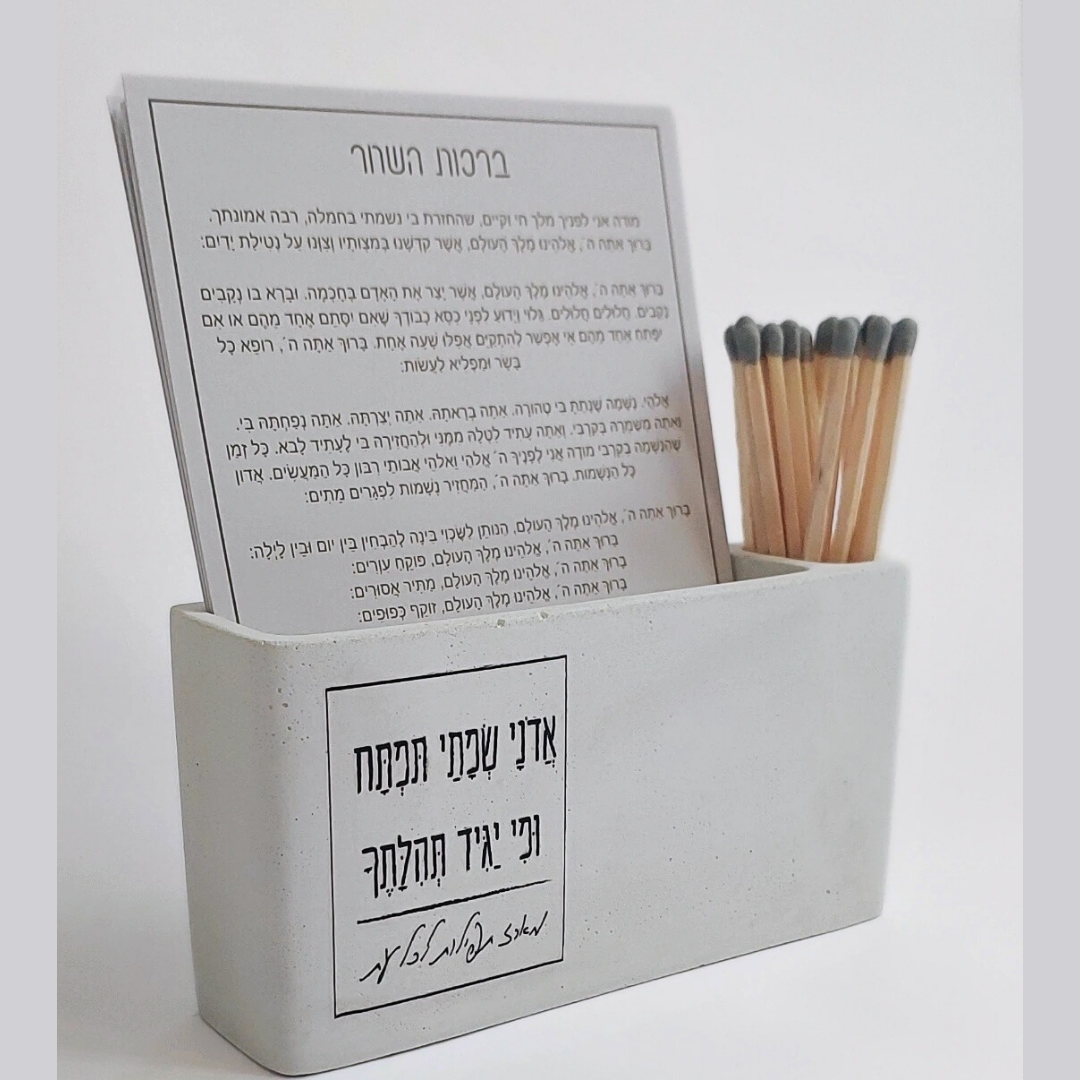 ברכות השחר
מודה אני לפניך מלך חי וקיים, שהחזרת בי נשמתי בחמלה, רבה אמונתך.
בָּרוּךְ אַתָּה ה׳, אֱלֹהֵינוּ מֶלֶךְ הָעוֹלָם, אֲשֶׁר קִדְּשָׁנוּ בְּמִצְוֹתָיו וְצִוָּנוּ עַל נְטִילַת יָדַיִם:
בָּרוּךְ אַתָּה ה׳, אֱלֹהֵינוּ מֶלֶךְ הָעוֹלָם, אֲשֶׁר יָצַר אֶת הָאָדָם בְּחָכְמָה. וּבָרָא בוֹ נְקָבִים
נְקָבִים. חֲלוּלִים חֲלוּלִים. גָּלוּי וְיָדוּעַ לִפְנֵי כִסֵּא כְבוֹדֶךָ שֶׁאִם יִסָּתֵם אֶחָד מֵהֶם אוֹ אִם
יִפָּתֵחַ אֶחָד מֵהֶם אֵי אֶפְשַׁר לְהִתְקַיֵּם אֲפִלּוּ שָׁעָה אֶחָת. בָּרוּךְ אַתָּה ה׳, רוֹפֵא כָל
בָּשָׂר וּמַפְלִיא לַעֲשׂוֹת:
אֱלֹהַי. נְשָׁמָה שֶׁנָּתַתָּ בִּי טְהוֹרָה. אַתָּה בְרָאתָהּ. אַתָּה יְצַרְתָּהּ. אַתָּה נְפַחְתָּהּ בִּי.
וְאַתָּה מְשַׁמְּרָהּ בְּקִרְבִּי. וְאַתָּה עָתִיד לִטְּלָהּ מִמֶּנִּי וּלְהַחֲזִירָהּ בִּי לֶעָתִיד לָבֹא. כָּל זְמַן
שֶׁהַנְּשָׁמָה בְקִרְבִּי מוֹדֶה אֲנִי לְפָנֶיךָ ה׳ אֱלֹהַי וֵאלֹהֵי אֲבוֹתַי רִבּוֹן כָּל הַמַּעֲשִׂים. אֲדוֹן
כָּל הַנְּשָׁמוֹת. בָּרוּךְ אַתָּה ה׳, הַמַּחֲזִיר נְשָׁמוֹת לִפְגָרִים מֵתִים:
בָּרוּךְ אַתָּה ה׳, אֱלֹהֵינוּ מֶלֶךְ הָעוֹלָם, הַנּוֹתֵן לַשֶּׂכְוִי בִינָה לְהַבְחִין בֵּין יוֹם וּבֵין לָיְלָה:
בָּרוּךְ אַתָּה ה׳, אֱלֹהֵינוּ מֶלֶךְ הָעוֹלָם, פּוֹקֵחַ עִוְרִים:
בָּרוּךְ אַתָּה ה׳, אֱלֹהֵינוּ מֶלֶךְ הָעוֹלָם, מַתִּיר אֲסוּרִים:
בָּרוּךְ אַתָּה ה׳, אֱלֹהֵינוּ מֶלֶךְ הָעוֹלָם, זוֹקֵף כְּפוּפִים:
אֲדֹנָי שְׂפָתַי תִּפְתָּח
וּפִי יַגִּיד תְּהִלָּתֶךָ
מארז תפילות לכל עת